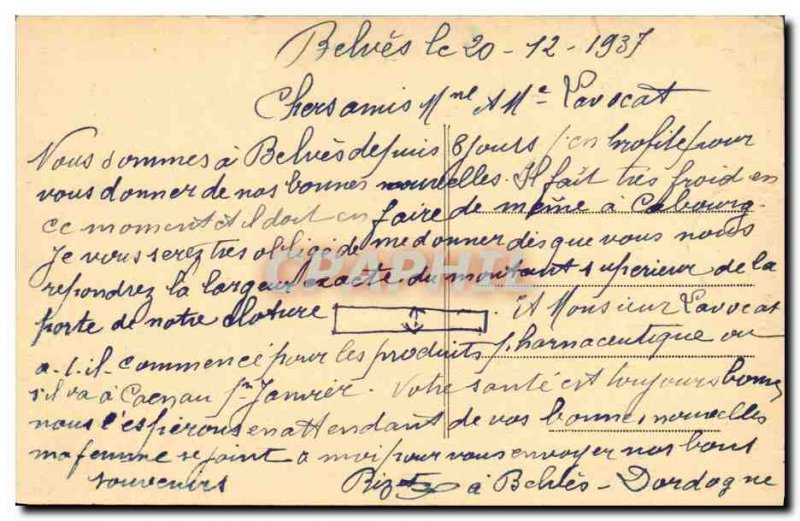 Belvès le 20-12-1937
Chers amis Mme & Me Lavocat
Nous sommes à Belvès depuis 8 jours j'en profite pour
vous donner de nos bonnes nouvelles. Il fait très froid en
ce moment et il doit en faire de même à Cabourg.
Je vous serez très obligé de me donner dès que vous nous
repondrez la largeur exacte du montant superieur de la
porte de notre cloture . Et Monsieur Lavocat
a-t-il commencé pour les produits pharmaceutique ou
s'il va à Caen au 1er Janvier. Votre santé est toujours bonne,
nous l'espérons en attendant de vos bonnes nouvelles
ma femme se joint a moi pour vous envoyer nos bons
souvenirs à Belvès - Dordogne
CPAPHIL